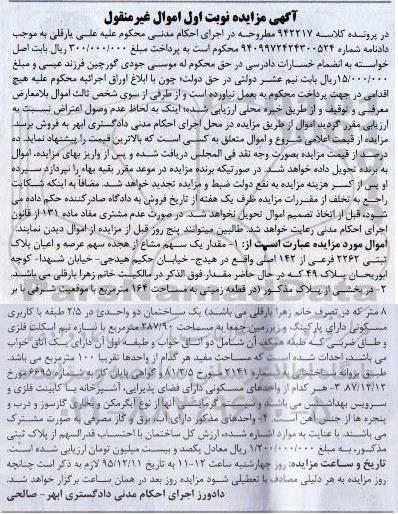 آگهی مزایده نوبت اول اموال غیرمنقول
در پرونده کلاسه ۹۴۲۲۱۷ مطروحه در اجرای احکام مدنی محکوم علیه علی یارقلی به موجب
دادنامه شماره ۹۴۰۹۹۷۲۴۲۴۳۰۰۵۲۴ محکوم است به پرداخت مبلغ ۳۰۰/۰۰۰/۰۰۰ ریال بابت اصل
خواسته به انضمام خسارات دادرسی در حق محکوم له موسی جودی گورچین فرزند عیسی و مبلغ
۱۵/۰۰۰/۰۰۰ریال بابت نیم عشر دولتی در حق دولت؛ چون با ابلاغ اوراق اجرائیه محکوم علیه هیچ
اقدامی در جهت پرداخت محکوم به بعمل نیاورده است و از طرفی از سوی شخص ثالث اموال بلامعارض
معرفی و توقیف و از طریق خبره محلی ارزیابی شده؛ اینک به لحاظ عدم وصول اعتراض نسبت به
ارزیابی مقرر گردید اموال از طریق مزایده در محل اجرای احکام مدنی دادگستری ابهر به فروش برسد.
مزایده از قیمت اعلامی شروع و اموال متعلق به کسی است که بالاترین قیمت را پیشنهاد نماید. ده
درصد از قیمت مزایده بصورت وجه نقد فی المجلس دریافت شده و پس از واریز بهای مزایده، اموال
به برنده تحویل داده خواهد شد. در صورتیکه برنده مزایده در موعد مقرر بقیه بهاء را نپردازد سپرده
او پس از کسر هزینه مزایده به نفع دولت ضبط و مزایده تجدید خواهد شد. مضافاً به اینکه شکایت
راجع به تخلف از مقررات مزایده ظرف یک هفته از تاریخ فروش به دادگاه صادرکننده حکم داده می
شود، قبل از اتخاذ تصمیم اموال تحویل نخواهد شد. در صورت عدم مشتری مفاد ماده ۱۳۱ از قانون
اجرای احکام مدنی رعایت خواهد شد. طالبین میتوانند پنج روز قبل از مزایده از اموال دیدن نمایند.
اموال مورد مزایده عبارت است از: ۱- مقدار یک سهم مشاع از هجده سهم عرصه و اعیان پلاک
ثبتی ۲۲۶۲ فرعی از ۱۴۲ اصلی واقع در هیدج- خیابان حکیم هیدجی- خیابان شهدا- کوچه
ابوریحان- پلاک ۴۹ که در حال حاضر مقدار فوق الذکر در مالکیت خانم زهرا یارقلی می باشد.
۲- در بخشی از پلاک مذکور (در قطعه زمینی به مساحت ۱۶۴ مترمربع با موقعیت شرقی با بر
۸ متر که در تصرف خانم زهرا یارقلی می باشد) یک ساختمان دو واحدی در ۲/۵ طبقه با کاربری
مسکونی دارای پارکینگ و زیرزمین جمعا به مساحت ۲۸۷/۹۰ مترمربع با سازه نیم اسکلت فلزی
و طاق ضربی که طبقه همکف آن شامل دو اتاق خواب و طبقه اول آن دارای یک اتاق خواب
می باشد، احداث شده است که مساحت مفید هر کدام از واحدها تقریبا ۱۰۰ مترمربع می باشد.
طبق پروانه ساختمانی به شماره ۲۱۴۱ مورخ ۸۱/۳/۵ و گواهی پایان کار به شماره ۶۶۹۵مورخ
۸۷/۱۲/۱۲ ۳- هر کدام از واحدهای مسکونی دارای فضای پذیرایی، آشپزخانه با کابینت فلزی و
سرویس بهداشتی می باشد و سیستم گرمایشی آن از نوع آبگرمکن و بخاری گازسوز و درب و
پنجره ها از جنس آهن است. ۴- واحدهای مذکور دارای آب، برق و گاز مصرفی به صورت مشترک
می باشند. با عنایت به موارد اشاره شده، ارزش کل ساختمان با احتساب قدرالسهم از پلاک ثبتی
مذکور، به مبلغ ۱/۲۰۰/۰۰۰/۰۰۰ ریال معادل یکصد و بیست میلیون تومان ارزیابی شده است.
تاریخ و ساعت مزایده: روز چهارشنبه ساعت ۱۲-۱۱ به تاریخ ۹۵/۱۲/۱۱ لازم به ذکر است چنانچه
روز مزایده به هر دلیلی مصادف با تعطیلی شود مزایده روز بعد در همان ساعت برگزار خواهد شد.
دادورز اجرای احکام مدنی دادگستری ابهر - صالحی